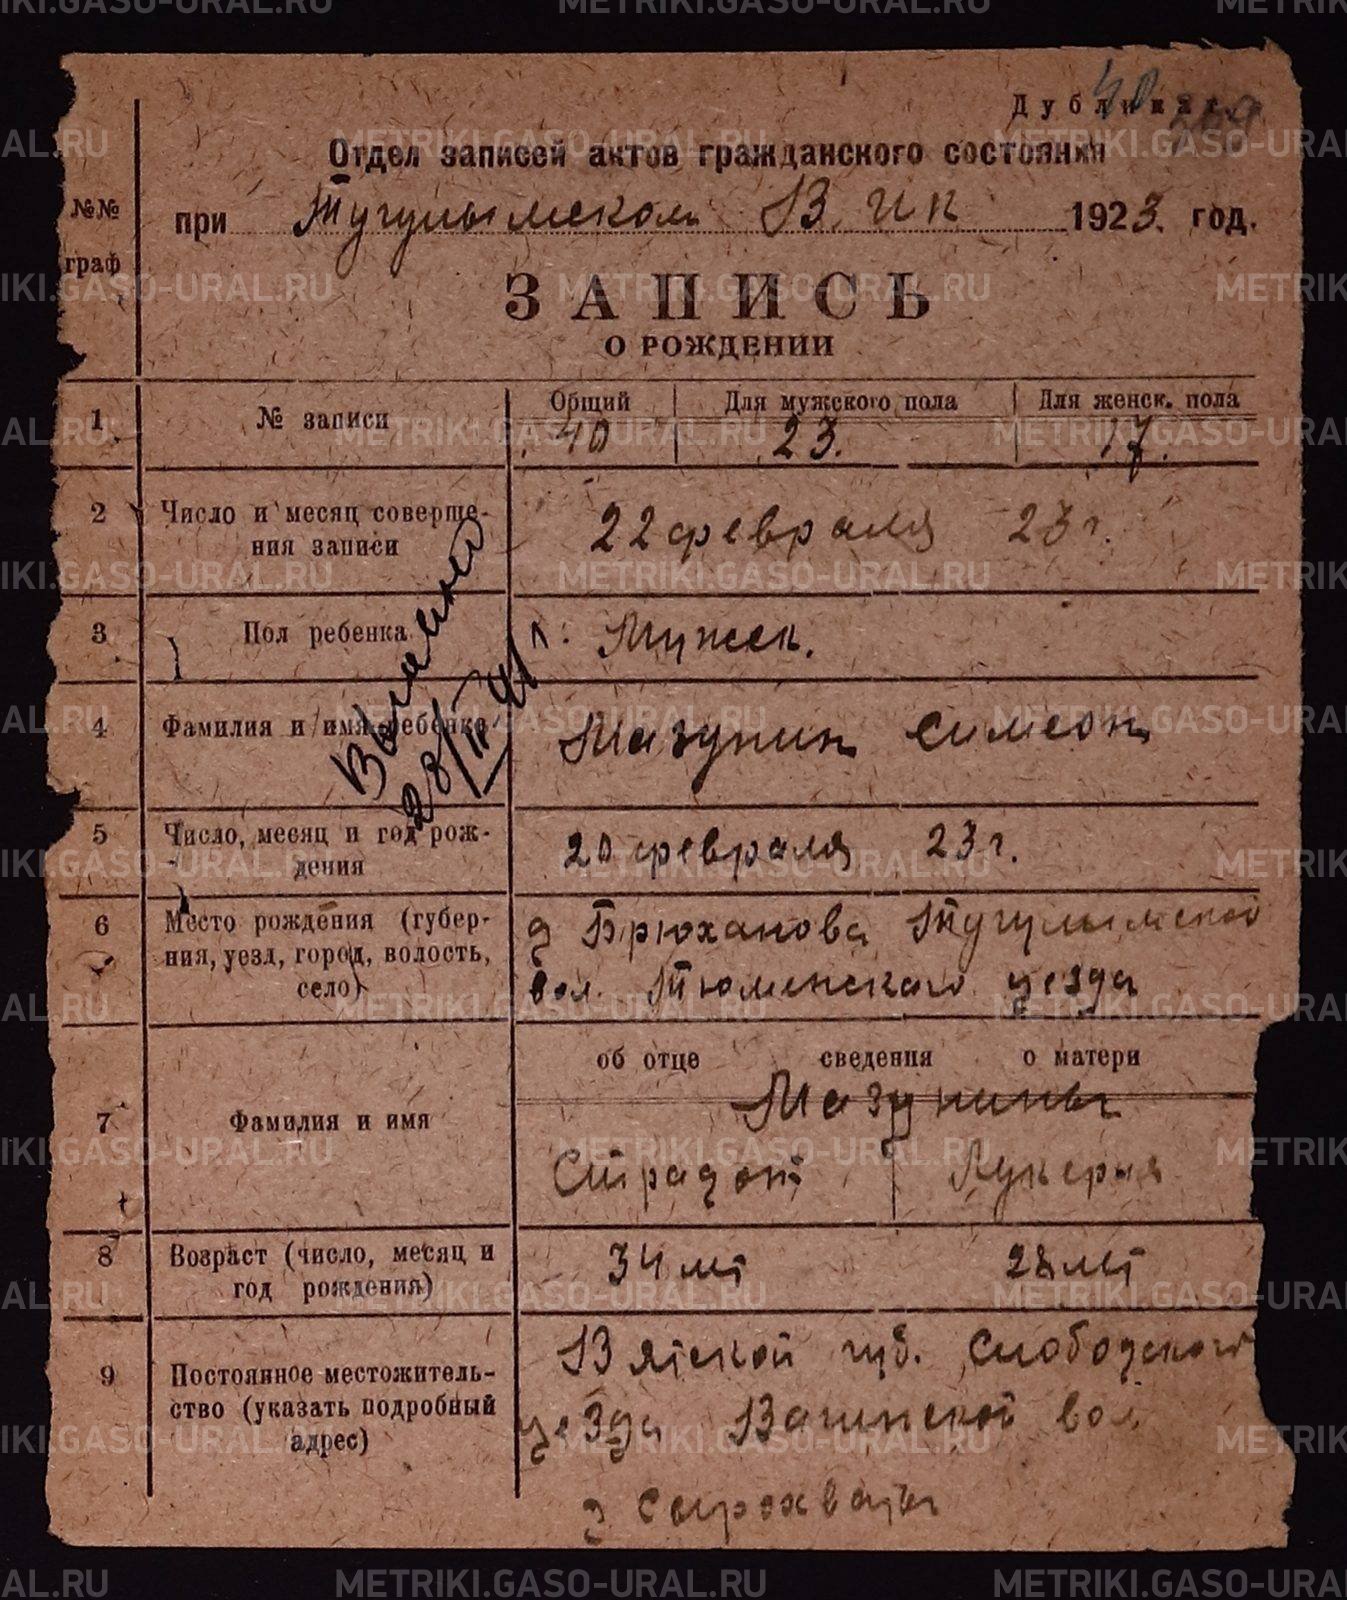 Дубликат.
40
Отдел записей актов гражданского состояния
№№ граф
при Тугулымском ВИК 1923. год.
ЗАПИСЬ
О РОЖДЕНИИ
1 № записи Общий Для мужского пола Для женск. пола
40 23. 17.
2 Число и месяц соверше-
ния записи
22 февраля 23 г.
3 Пол ребенка Мужск.
4 Фамилия и имя ребенка Мазунин Симеон
28/II 41 г.
5 Число, месяц и год рож-
дения
20 февраля 23 г.
6 Место рождения (губер-
ния, уезд, город, волость,
село)
д Брюханова Тугулымской
вол. Тюменского уезда
об отце сведения о матери
7 Фамилия и имя
Мазунины
Лукерья
8 Возраст (число, месяц и
год рождения)
34 лет 28 лет
9 Постоянное местожитель-
ство (указать подробный
адрес)
Вятской губ. Слободского
уезда Вагинской вол
д Сырохваты
METRIKI.GASO-URAL.RU